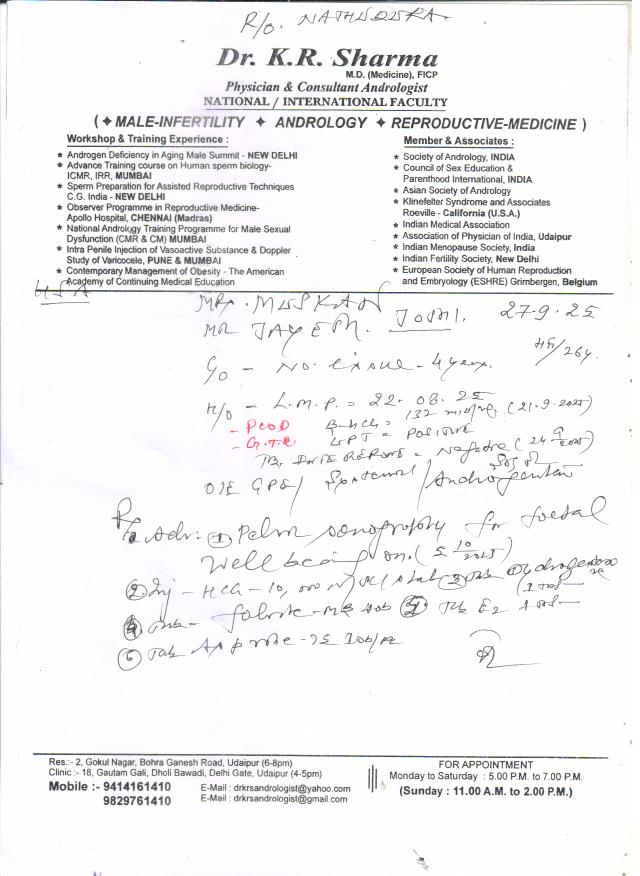 R/o. NATHDWARA.
Dr. K.R. Sharma
M.D. (Medicine), FICP
Physician & Consultant Andrologist
NATIONAL / INTERNATIONAL FACULTY
( ✦ MALE-INFERTILITY ✦ ANDROLOGY ✦ REPRODUCTIVE-MEDICINE )
Workshop & Training Experience :
★ Androgen Deficiency in Aging Male Summit - NEW DELHI
★ Advance Training course on Human sperm biology-
ICMR, IRR, MUMBAI
★ Sperm Preparation for Assisted Reproductive Techniques
C.G. India - NEW DELHI
★ Observer Programme in Reproductive Medicine-
Apollo Hospital, CHENNAI (Madras)
★ National Andrology Training Programme for Male Sexual
Dysfunction (CMR & CM) MUMBAI
★ Intra Penile Injection of Vasoactive Substance & Doppler
Study of Varicocele, PUNE & MUMBAI
★ Contemporary Management of Obesity - The American
Academy of Continuing Medical Education
Member & Associates :
★ Society of Andrology, INDIA
★ Council of Sex Education &
Parenthood International, INDIA
★ Asian Society of Andrology
★ Klinefelter Syndrome and Associates
Roeville - California (U.S.A.)
★ Indian Medical Association
★ Association of Physician of India, Udaipur
★ Indian Menopause Society, India
★ Indian Fertility Society, New Delhi
★ European Society of Human Reproduction
and Embryology (ESHRE) Grimbergen, Belgium
MRS. MUSKAN
MR JAYESH. JOSHI. 27-9-25
C/o - No. issue - 4 year.
H/o - L.M.P. = 22.08.25
- PCOD B-HCG = 132 (21-9-2025)
UPT = Positive
= Negative (24 9 2025)
O/E GPE/
Adv. ① Pelvic sonography for foetal
well being on. ( 5 10 2025)
② Inj - HCG - 10,000 ③ Tab
④ Tab - Folvite - MB ⑤ Tab E2
⑥ Tab
Res.:- 2, Gokul Nagar, Bohra Ganesh Road, Udaipur (6-8pm)
Clinic :- 18, Gautam Gali, Dholi Bawadi, Delhi Gate, Udaipur (4-5pm)
Mobile :- 9414161410
9829761410
E-Mail : drkrsandrologist@yahoo.com
E-Mail : drkrsandrologist@gmail.com
FOR APPOINTMENT
Monday to Saturday : 5.00 P.M. to 7.00 P.M.
(Sunday : 11.00 A.M. to 2.00 P.M.)